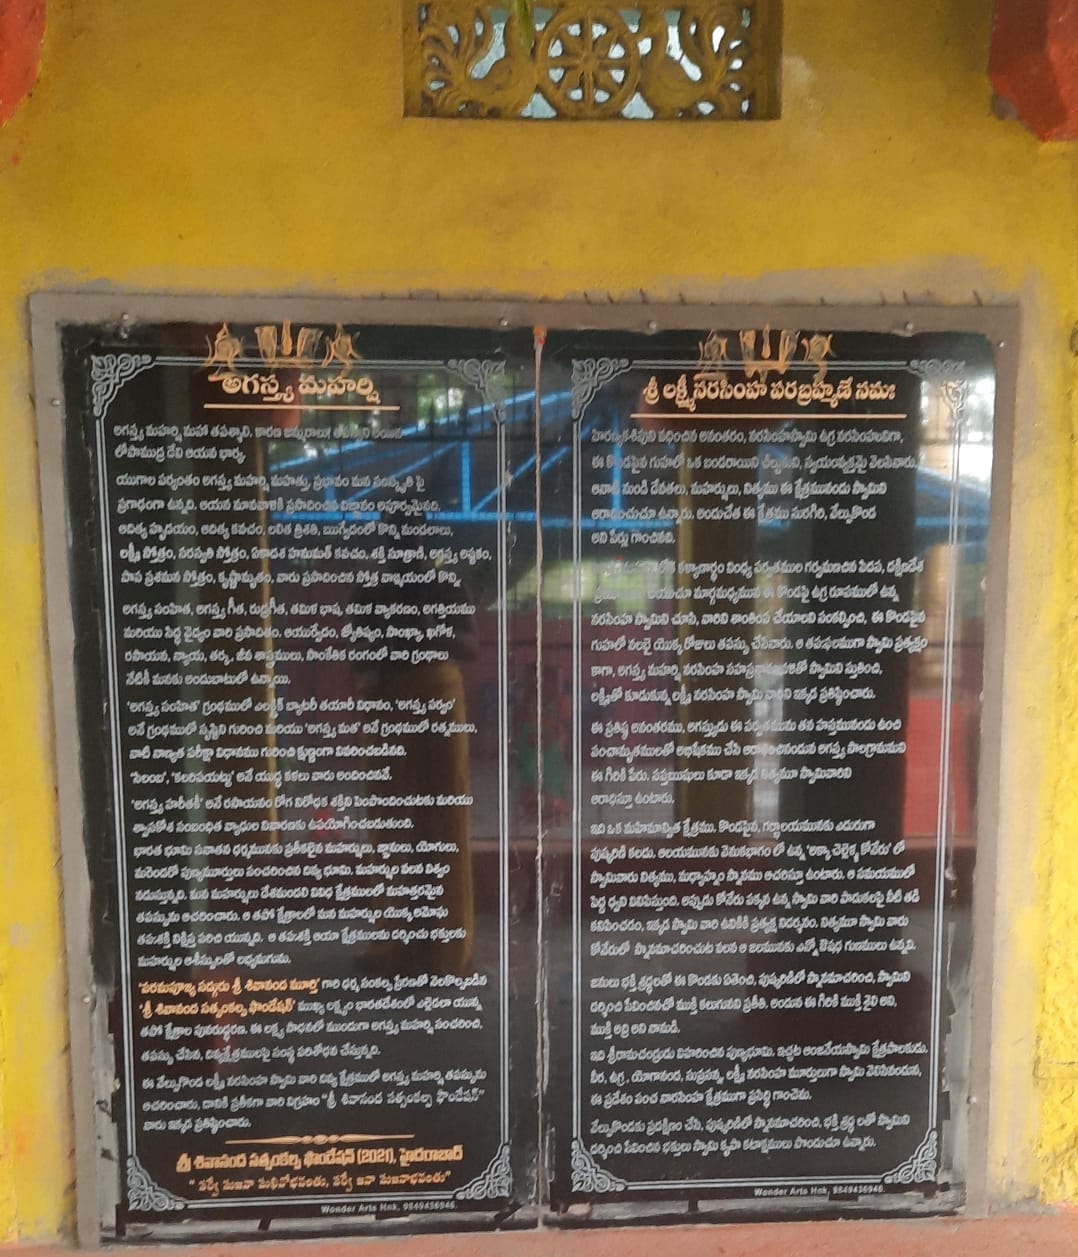 అగస్త్య మహర్షి
అగస్త్య మహర్షి మహా తపశ్శాలి. కారణ జన్మురాలు
లోపాముద్ర దేవి ఆయన భార్య.
యుగాల పర్యంతం అగస్త్య మహర్షి మహత్తు, ప్రభావం మన సంస్కృతి పై
ప్రగాఢంగా ఉన్నది. ఆయన మానవాళికి ప్రసాదించిన విజ్ఞానం అపూర్వమైనది.
ఆదిత్య హృదయం, ఆదిత్య కవచం, లలిత త్రిశతి, ఋగ్వేదంలో కొన్ని మండలాలు,
లక్ష్మీ స్తోత్రం, సరస్వతి స్తోత్రం, ఏకాదశ హనుమత్ కవచం, శక్తి సూత్రాణి, అగస్త్య అష్టకం,
పాప ప్రశమన స్తోత్రం, కృష్ణామృతం, వారు ప్రసాదించిన స్తోత్ర వాఙ్మయంలో కొన్ని
అగస్త్య సంహిత, అగస్త్య గీత, రుద్రగీత, తమిళ భాష, తమిళ వ్యాకరణం, అగత్తియము
మరియు సిద్ధ వైద్యం వారి ప్రసాదితం. ఆయుర్వేదం, జ్యోతిష్యం, సాంఖ్యా, ఖగోళ,
రసాయన, న్యాయ, తర్క, జీవ శాస్త్రములు, సాంకేతిక రంగంలో వారి గ్రంధాలు
నేటికీ మనకు అందుబాటులో ఉన్నాయి.
'అగస్త్య సంహిత' గ్రంథములో ఎలక్ట్రిక్ బ్యాటరీ తయారీ విధానం, 'అగస్త్య పర్వం'
అనే గ్రంథములో సృష్టిని గురించి మరియు 'అగస్త్య మత' అనే గ్రంథములో రత్నములు,
వాటి నాణ్యత పరీక్షా విధానము గురించి క్షుణ్ణంగా వివరించబడినది.
'సిలంబు', 'కలరిపయట్టు' అనే యుద్ధ కళలు వారు అందించినవే.
'అగస్త్య హరీతకీ' అనే రసాయనం రోగ నిరోధక శక్తిని పెంపొందించుటకు మరియు
శ్వాసకోశ సంబంధిత వ్యాధుల నివారణకు ఉపయోగించబడుతుంది.
భారత భూమి సనాతన ధర్మమునకు ప్రతీకలైన మహర్షులు, జ్ఞానులు, యోగులు,
మరెందరో పుణ్యమూర్తులు సంచరించిన దివ్య భూమి. మహర్షుల వలన విశ్వం
నడుస్తున్నది. మన మహర్షులు దేశమందలి వివిధ క్షేత్రములలో మహత్తరమైన
తపస్సును ఆచరించారు. ఆ తపో క్షేత్రాలలో మన మహర్షుల యొక్క అమోఘ
తపఃశక్తి నిక్షిప్త పరిచి యున్నది. ఆ తపఃశక్తి ఆయా క్షేత్రములను దర్శించు భక్తులకు
మహర్షుల ఆశీస్సులతో లభ్యమగును.
'పరమపూజ్య సద్గురు శ్రీ శివానంద మూర్తి' గారి ధర్మ సంకల్ప ప్రేరణతో నెలకొల్పబడిన
'శ్రీ శివానంద సత్సంకల్ప ఫౌండేషన్' ముఖ్య లక్ష్యం భారతదేశంలో ఎల్లెడలా యున్న
తపో క్షేత్రాల పునరుద్ధరణ. ఈ లక్ష్య సాధనలో ముందుగా అగస్త్య మహర్షి సంచరించి,
తపస్సు చేసిన, దివ్యక్షేత్రములపై సంస్థ పరిశోధన చేస్తున్నది.
ఈ వేల్పుగొండ లక్ష్మీ నరసింహ స్వామి వారి దివ్య క్షేత్రములో అగస్త్య మహర్షి తపస్సును
ఆచరించారు, దానికి ప్రతీకగా వారి విగ్రహం "శ్రీ శివానంద సత్సంకల్ప ఫౌండేషన్"
వారు ఇక్కడ ప్రతిష్ఠించారు.
శ్రీ శివానంద సత్సంకల్ప ఫౌండేషన్ (2021), హైదరాబాద్
" సర్వే సుజనా సుఖినోభవంతు, సర్వే జనా సుజనాభవంతు"
Wonder Arts Hnk, 9849436946.
శ్రీ లక్ష్మీనరసింహ పరబ్రహ్మణే నమః
హిరణ్యకశిపుని వధించిన అనంతరం, నరసింహస్వామి ఉగ్ర నరసింహునిగా,
ఈ కొండపైన గుహలో ఒక బండరాయిని చీల్చుకుని, స్వయంవ్యక్తమై వెలసినారు.
ఆనాటి నుండి దేవతలు, మహర్షులు, నిత్యము ఈ క్షేత్రమునందు స్వామిని
ఆరాధించుచూ ఉన్నారు. అందుచేత ఈ క్షేత్రము సురగిరి, వేల్పుకొండ
అని పేర్లు గాంచినవి.
కళ్యాణార్థం వింధ్య పర్వతముల గర్వమణచిన పిదప, దక్షిణదేశ
మార్గమధ్యమున ఈ కొండపై ఉగ్ర రూపములో ఉన్న
నరసింహ స్వామిని చూసి, వారిని శాంతింప చేయాలని సంకల్పించి, ఈ కొండపైన
గుహలో నలభై యొక్క రోజులు తపస్సు చేసినారు. ఆ తపఃఫలముగా స్వామి ప్రత్యక్షం
కాగా, అగస్త్య మహర్షి, నరసింహ సహస్రనామావళితో స్వామిని స్తుతించి,
లక్ష్మితో కూడుకున్న లక్ష్మీ నరసింహ స్వామి వారిని ఇక్కడ ప్రతిష్ఠించారు.
ఈ ప్రతిష్ఠ అనంతరము, అగస్త్యుడు ఈ పర్వతమును తన హస్తమునందు ఉంచి
పంచామృతములతో అభిషేకము చేసి ఆరాధించినందున అగస్త్య సాలగ్రామమని
ఈ గిరికి పేరు. సప్తఋషులు కూడా ఇక్కడ నిత్యమూ స్వామివారిని
ఆరాధిస్తూ ఉంటారు.
ఇది ఒక మహిమాన్విత క్షేత్రము. కొండపైన, గర్భాలయమునకు ఎదురుగా
పుష్కరిణి కలదు. ఆలయమునకు వెనుకభాగం లో ఉన్న 'అక్కా చెల్లెళ్ళ కోనేరు' లో
స్వామివారు నిత్యము, మధ్యాహ్నం స్నానము ఆచరిస్తూ ఉంటారు. ఆ సమయములో
పెద్ద ధ్వని వినిపిస్తుంది. అప్పుడు కోనేరు పక్కన ఉన్న స్వామి వారి పాదుకలపై నీటి తడి
కనిపించడం, ఇక్కడ స్వామి వారి ఉనికికి ప్రత్యక్ష నిదర్శనం. నిత్యమూ స్వామి వారు
కోనేరులో స్నానమాచరించుట వలన ఆ జలమునకు ఎన్నో ఔషధ గుణములు ఉన్నవి.
జనులు భక్తి శ్రద్ధలతో ఈ కొండకు ఏతెంచి, పుష్కరిణిలో స్నానమాచరించి, స్వామిని
దర్శించి సేవించినచో ముక్తి కలుగునని ప్రతీతి. అందున ఈ గిరికి ముక్తి శైల అని,
ముక్తి అద్రి అని నామడి.
ఇది శ్రీరామచంద్రుడు విహరించిన పుణ్యభూమి. ఇచ్చట ఆంజనేయస్వామి క్షేత్రపాలకుడు.
వీర, ఉగ్ర, యోగానంద, సుప్రసన్న, లక్ష్మీ నరసింహ మూర్తులుగా స్వామి వెలిసినందున,
ఈ ప్రదేశం పంచ నారసింహ క్షేత్రముగా ప్రసిద్ధి గాంచెను.
వేల్పుకొండకు ప్రదక్షిణం చేసి, పుష్కరిణిలో స్నానమాచరించి, భక్తి శ్రద్ధ లతో స్వామిని
దర్శించి సేవించిన భక్తులు స్వామి కృపా కటాక్షములు పొందుచూ ఉన్నారు.
Wonder Arts Hnk, 9849436946.